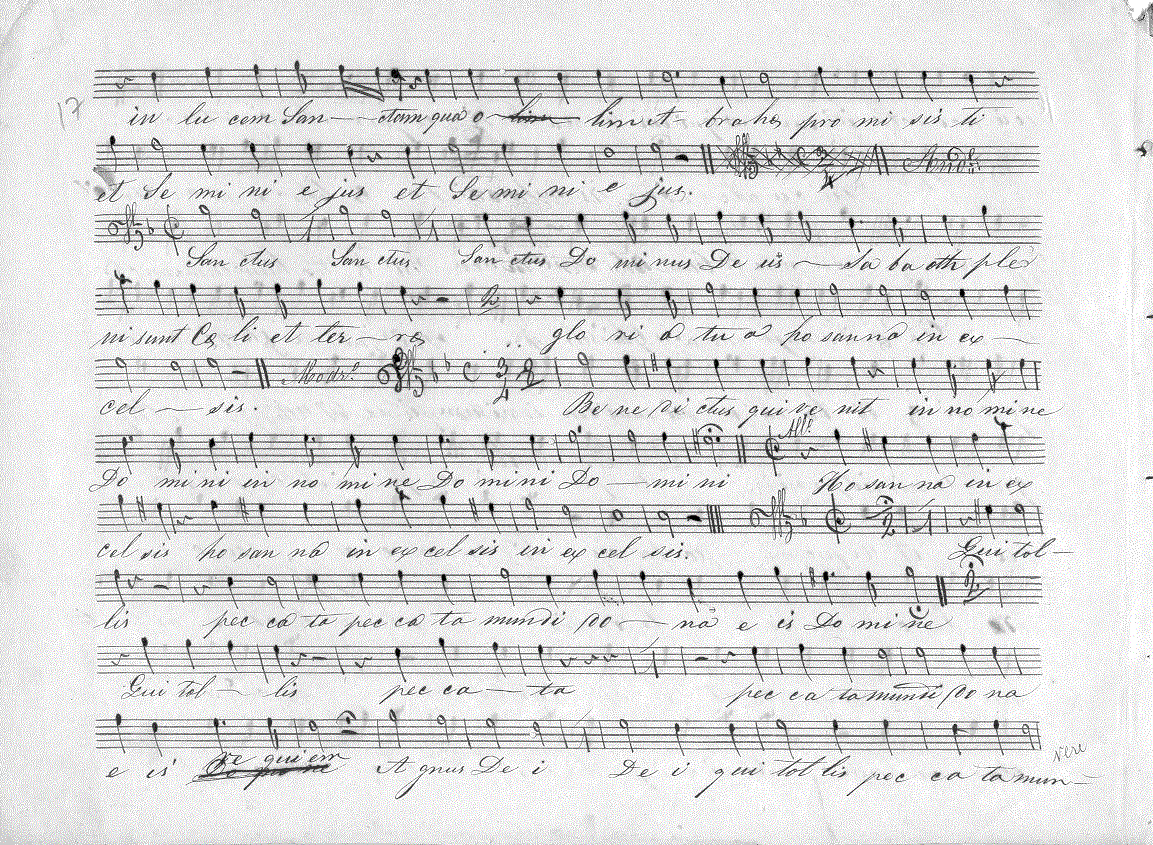 17
in lu cem San - ctam qua o - lim lim A - brahæ pro mi sis ti
3/4 And.
et Se mi ni e jus et Se mi ni e jus.
San ctus San ctus San ctus Do mi nus De us Sa ba oth ple
ni sunt Cæ li et ter - ræ glo ri a tu a ho sanna in ex -
Modr.o 3/4
cel - sis. Be ne di ctus qui ve nit in no mi ne
All.o
Do mi ni in no mi ne Do mi ni Do - mi ni Ho san na in ex
cel sis ho san na in ex cel sis in ex cel sis. Qui tol -
lis pec ca ta pec ca ta mundi do - na e is Do mi ne
Qui tol - lis pec ca - ta pec ca ta mundi do na
requiem
e is A gnus De i De i qui tol lis pec ca ta mun -